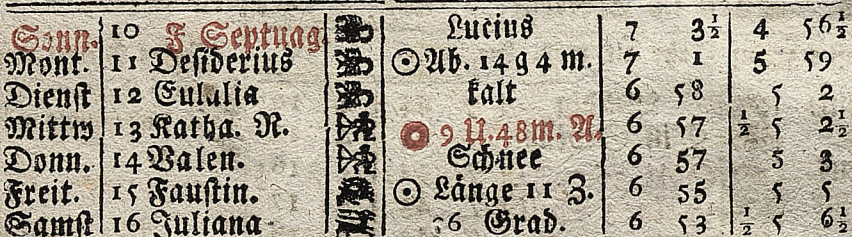 Sonn. 10 F Septuag. Lucius 7 3½ 4 56½
Mont. 11 Desiderius ☉Ab. 14 g 4 m. 7 1 5 59
Dienst 12 Eulalia kalt 6 58 5 2
Mittw 13 Katha. R. 9 U. 48 m. A. 6 57 ½ 5 2½
Donn. 14 Valen. Schnee 6 57 5 3
Freit. 15 Faustin. ☉ Länge 11 Z. 6 55 5 5
Samst 16 Juliana 26 Grad. 6 53 ½ 5 6½